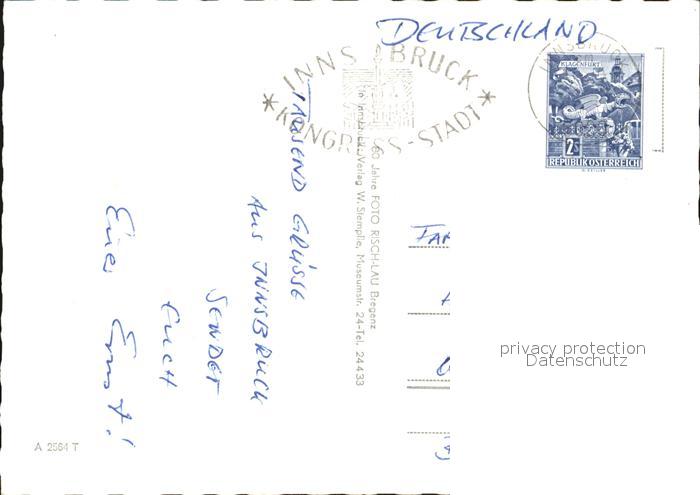 DEUTSCHLAND
INNSBRUCK
* KONGRESS-STADT *
INNSBRUCK
KLAGENFURT
2S
REPUBLIK ÖSTERREICH
TAUSEND GRÜSSE
AUS INNSBRUCK
SENDET
EUCH
Euer Ernst!
60 Jahre FOTO RISCH-LAU Bregenz
Innsbruck: Verlag W. Stempfle, Museumstr. 24-Tel. 24433
FAM
privacy protection
Datenschutz
A 2564 T